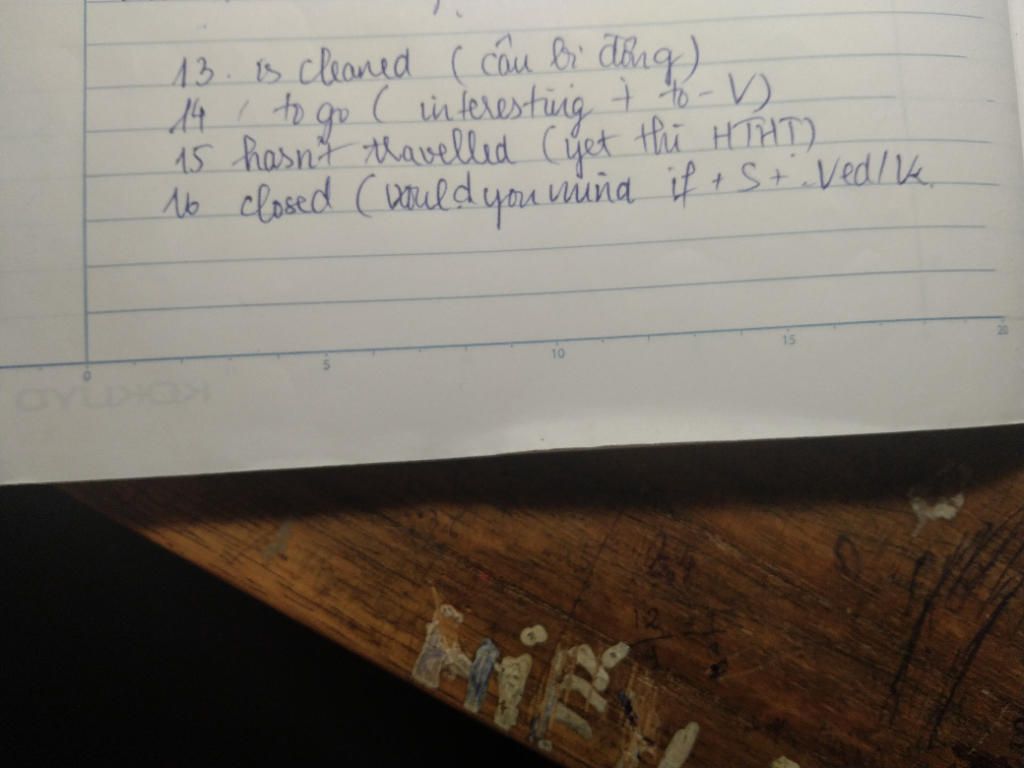 13. is cleaned (câu bị động)
14 to go (interesting + to - V)
15 hasn't travelled (yet thì HTHT)
16 closed (would you mind if + S + Ved/V
0 5 10 15 20
KOKUYO
12